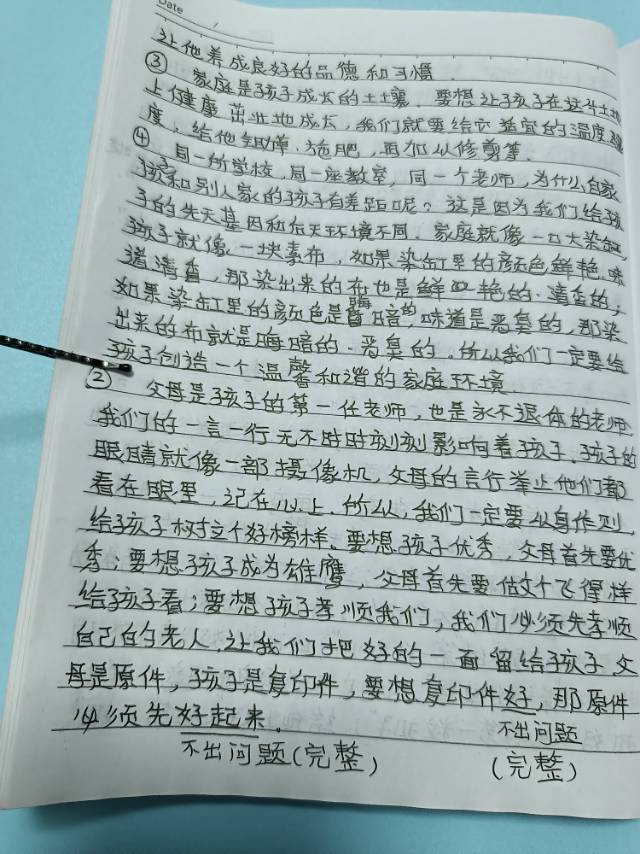 Date
让他养成良好的品德和习惯.
③ 家庭是孩子成长的土壤, 要想让孩子在这片土地
上健康茁壮地成长, 我们就要给它适宜的温度
度, 给他锄草、施肥, 再加以修剪等.
④ 同一所学校, 同一座教室, 同一个老师, 为什么自家
孩子和别人家的孩子有差距呢? 这是因为我们给孩
子的先天基因和后天环境不同. 家庭就像一口大染缸,
孩子就像一块素布, 如果染缸里的颜色鲜艳, 味
道清香, 那染出来的布也是鲜艳的、清香的,
如果染缸里的颜色是晦暗的, 味道是恶臭的, 那染
出来的布就是晦暗的、恶臭的. 所以我们一定要给
孩子创造一个温馨和谐的家庭环境
② 父母是孩子的第一任老师, 也是永不退休的老师.
我们的一言一行无不时时刻刻影响着孩子、孩子的
眼睛就像一部摄像机, 父母的言行举止他们都
看在眼里, 记在心上. 所以, 我们一定要以身作则,
给孩子树立个好榜样、要想孩子优秀, 父母首先要优
秀; 要想孩子成为雄鹰, 父母首先要做个飞得样
给孩子看; 要想孩子孝顺我们, 我们必须先孝顺
自己的老人. 让我们把好的一面留给孩子. 父
母是原件, 孩子是复印件, 要想复印件好, 那原件
必须先好起来.
不出问题
不出问题(完整)
(完整)